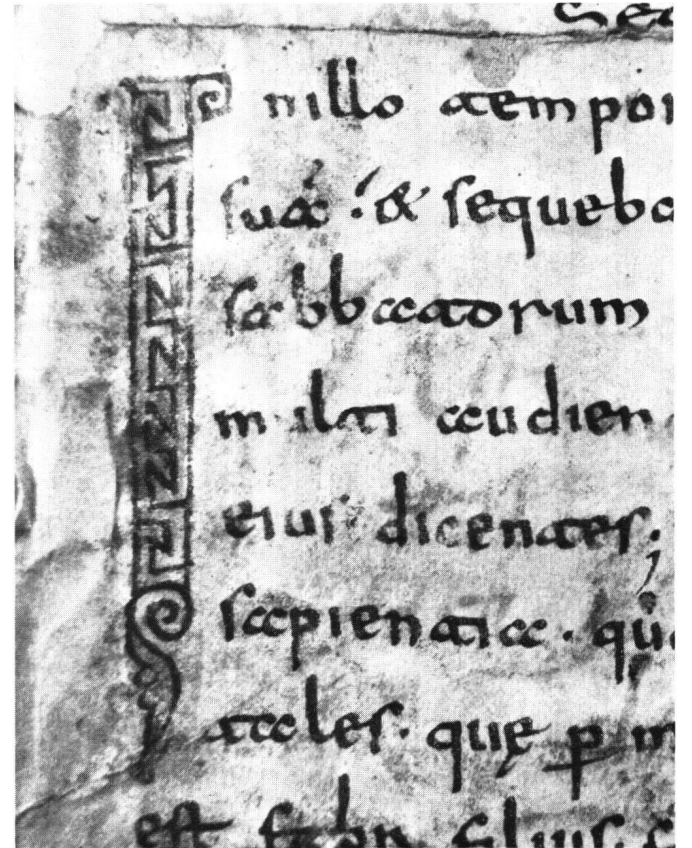 Inillo tempor
suā · & sequeba
sabbatorum
multi audien
eius dicentes;
sapientia · qu
tales · quę ꝑ m
est faber filius